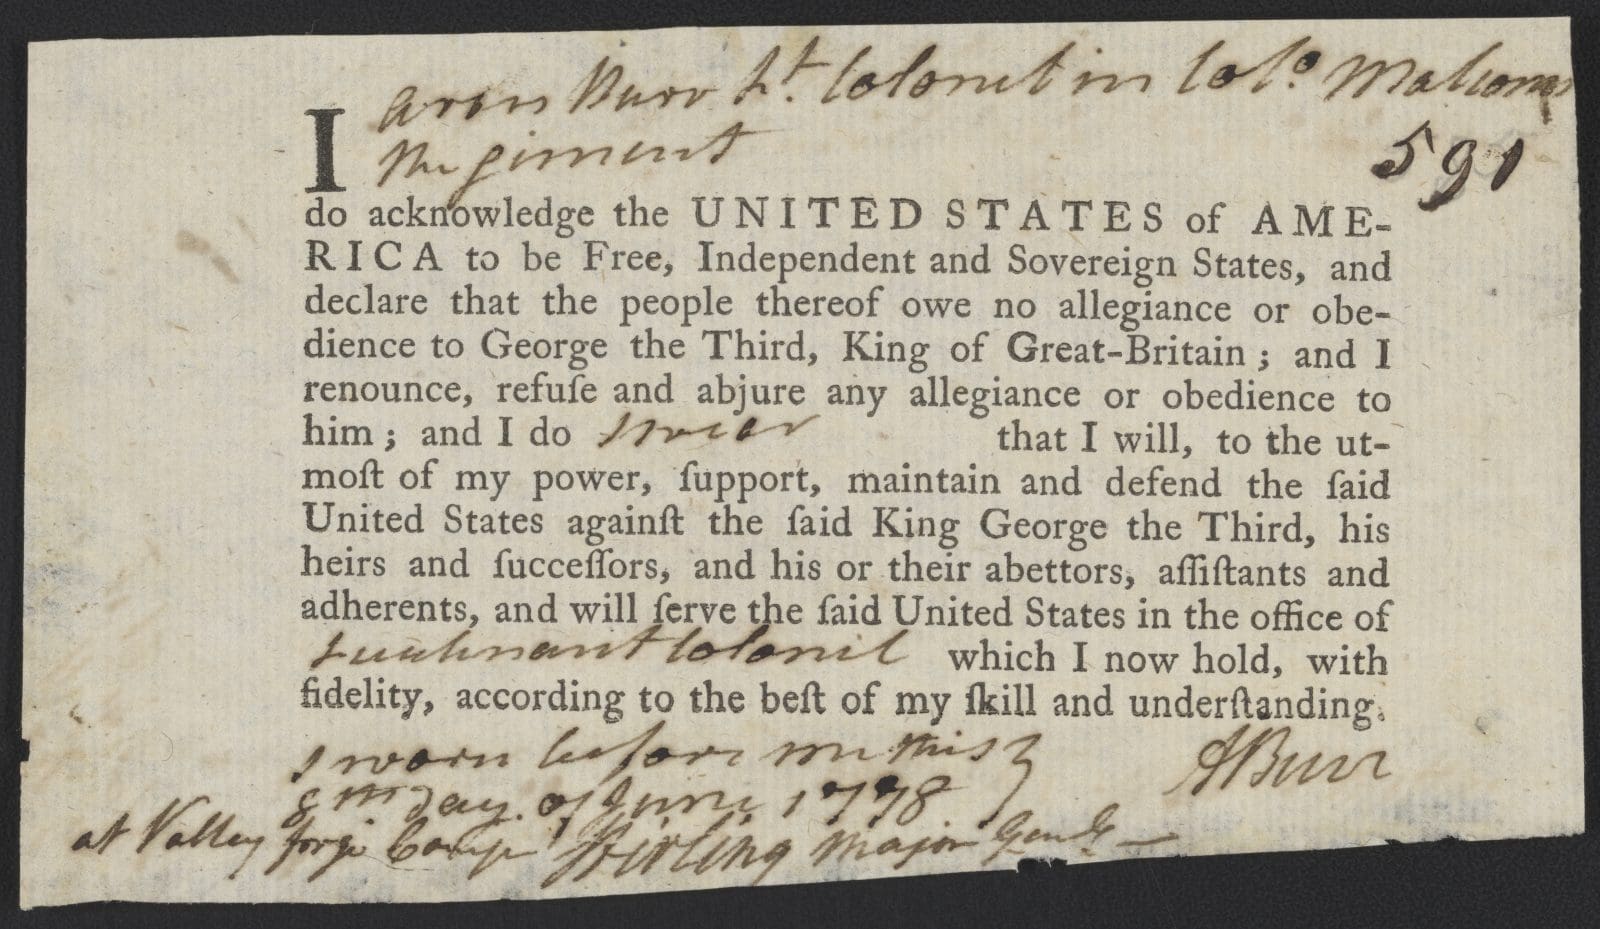 I Aron Burr Lt. Colonel in Colo. Malcoms
Regiment
591
do acknowledge the UNITED STATES of AME-
RICA to be Free, Independent and Sovereign States, and
declare that the people thereof owe no allegiance or obe-
dience to George the Third, King of Great-Britain ; and I
renounce, refuſe and abjure any allegiance or obedience to
him ; and I do swear that I will, to the ut-
moſt of my power, ſupport, maintain and defend the ſaid
United States againſt the ſaid King George the Third, his
heirs and ſucceſſors, and his or their abettors, aſſiſtants and
adherents, and will ſerve the ſaid United States in the office of
Lieutenant Colonel which I now hold, with
fidelity, according to the beſt of my ſkill and underſtanding.
Sworn before me this
8th day of June 1778
ABurr
at Valley forge Camp Stirling Major Genl.